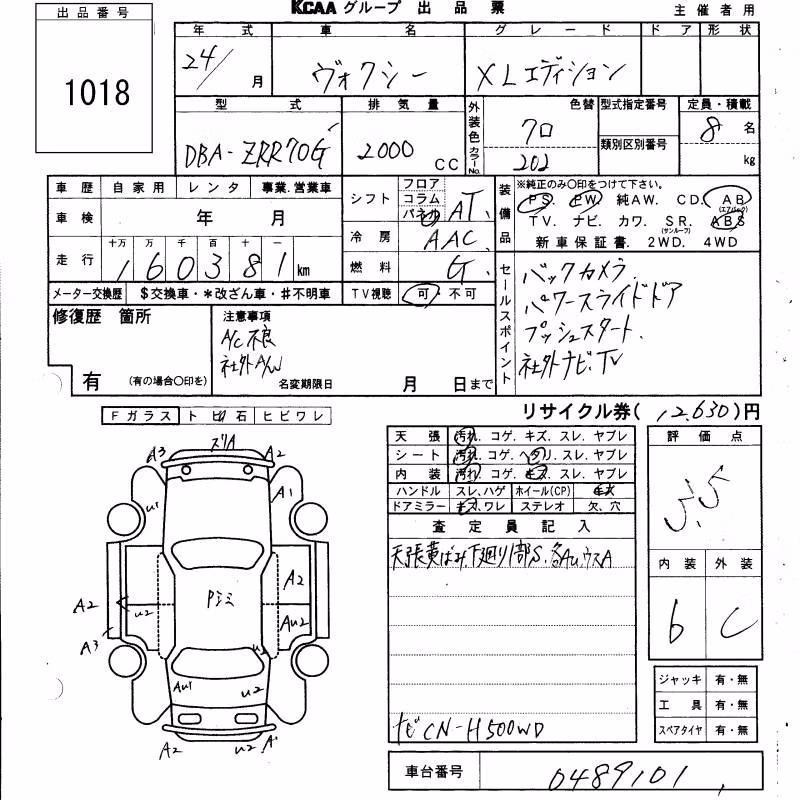 出品番号
KCAA グループ 出品票
主催者用
1018
年式 車名 グレード ドア 形状
24/ 月 ヴォクシー XLエディション
型式 排気量 外装色 カラーNo. 色替 型式指定番号 定員・積載
類別区別番号
DBA-ZRR70G 2000 CC 70 202 8 名
kg
車歴 自家用 レンタ 事業.営業車
車検 年 月
走行 十万 万 千 百 十 一
160381 km
シフト フロア コラム パネル AT
冷房 AAC
燃料 G
装備品 ※純正のみ〇印をつけて下さい。
PS. PW. 純AW. CD. AB (エアバック)
TV. ナビ. カワ. SR. (サンルーフ) ABS
新車保証書. 2WD. 4WD
メーター交換歴 $交換車・*改ざん車・#不明車 TV視聴 可・不可
セールスポイント
バックカメラ.
パワースライドドア
プッシュスタート.
社外ナビ.TV
修復歴 箇所
有 (有の場合〇印を)
注意事項
A/C不良
社外A/W
名変期限日 月 日まで
リサイクル券( 12,630)円
Fガラス トビ石 ヒビワレ
天張 汚れ. コゲ. キズ. スレ. ヤブレ
シート 汚れ. コゲ. ヘタリ. スレ. ヤブレ
内装 汚れ. コゲ. キズ. スレ. ヤブレ
ハンドル スレ,ハゲ ホイール(CP) キズ
ドアミラー キズ,ワレ ステレオ 欠、穴
評価点
3.5
内装 外装
6 C
査定員記入
天張黄ばみ.下廻り1部S.各Au.ウスA
ナビCN-H500WD
A3 ズリA A2
U1 A1
A2 U2 Pシミ A2
A3 AU2
U2
AU1 U2
A2 U2 A1
ジャッキ 有・無
工具 有・無
スペアタイヤ 有・無
車台番号 0489101